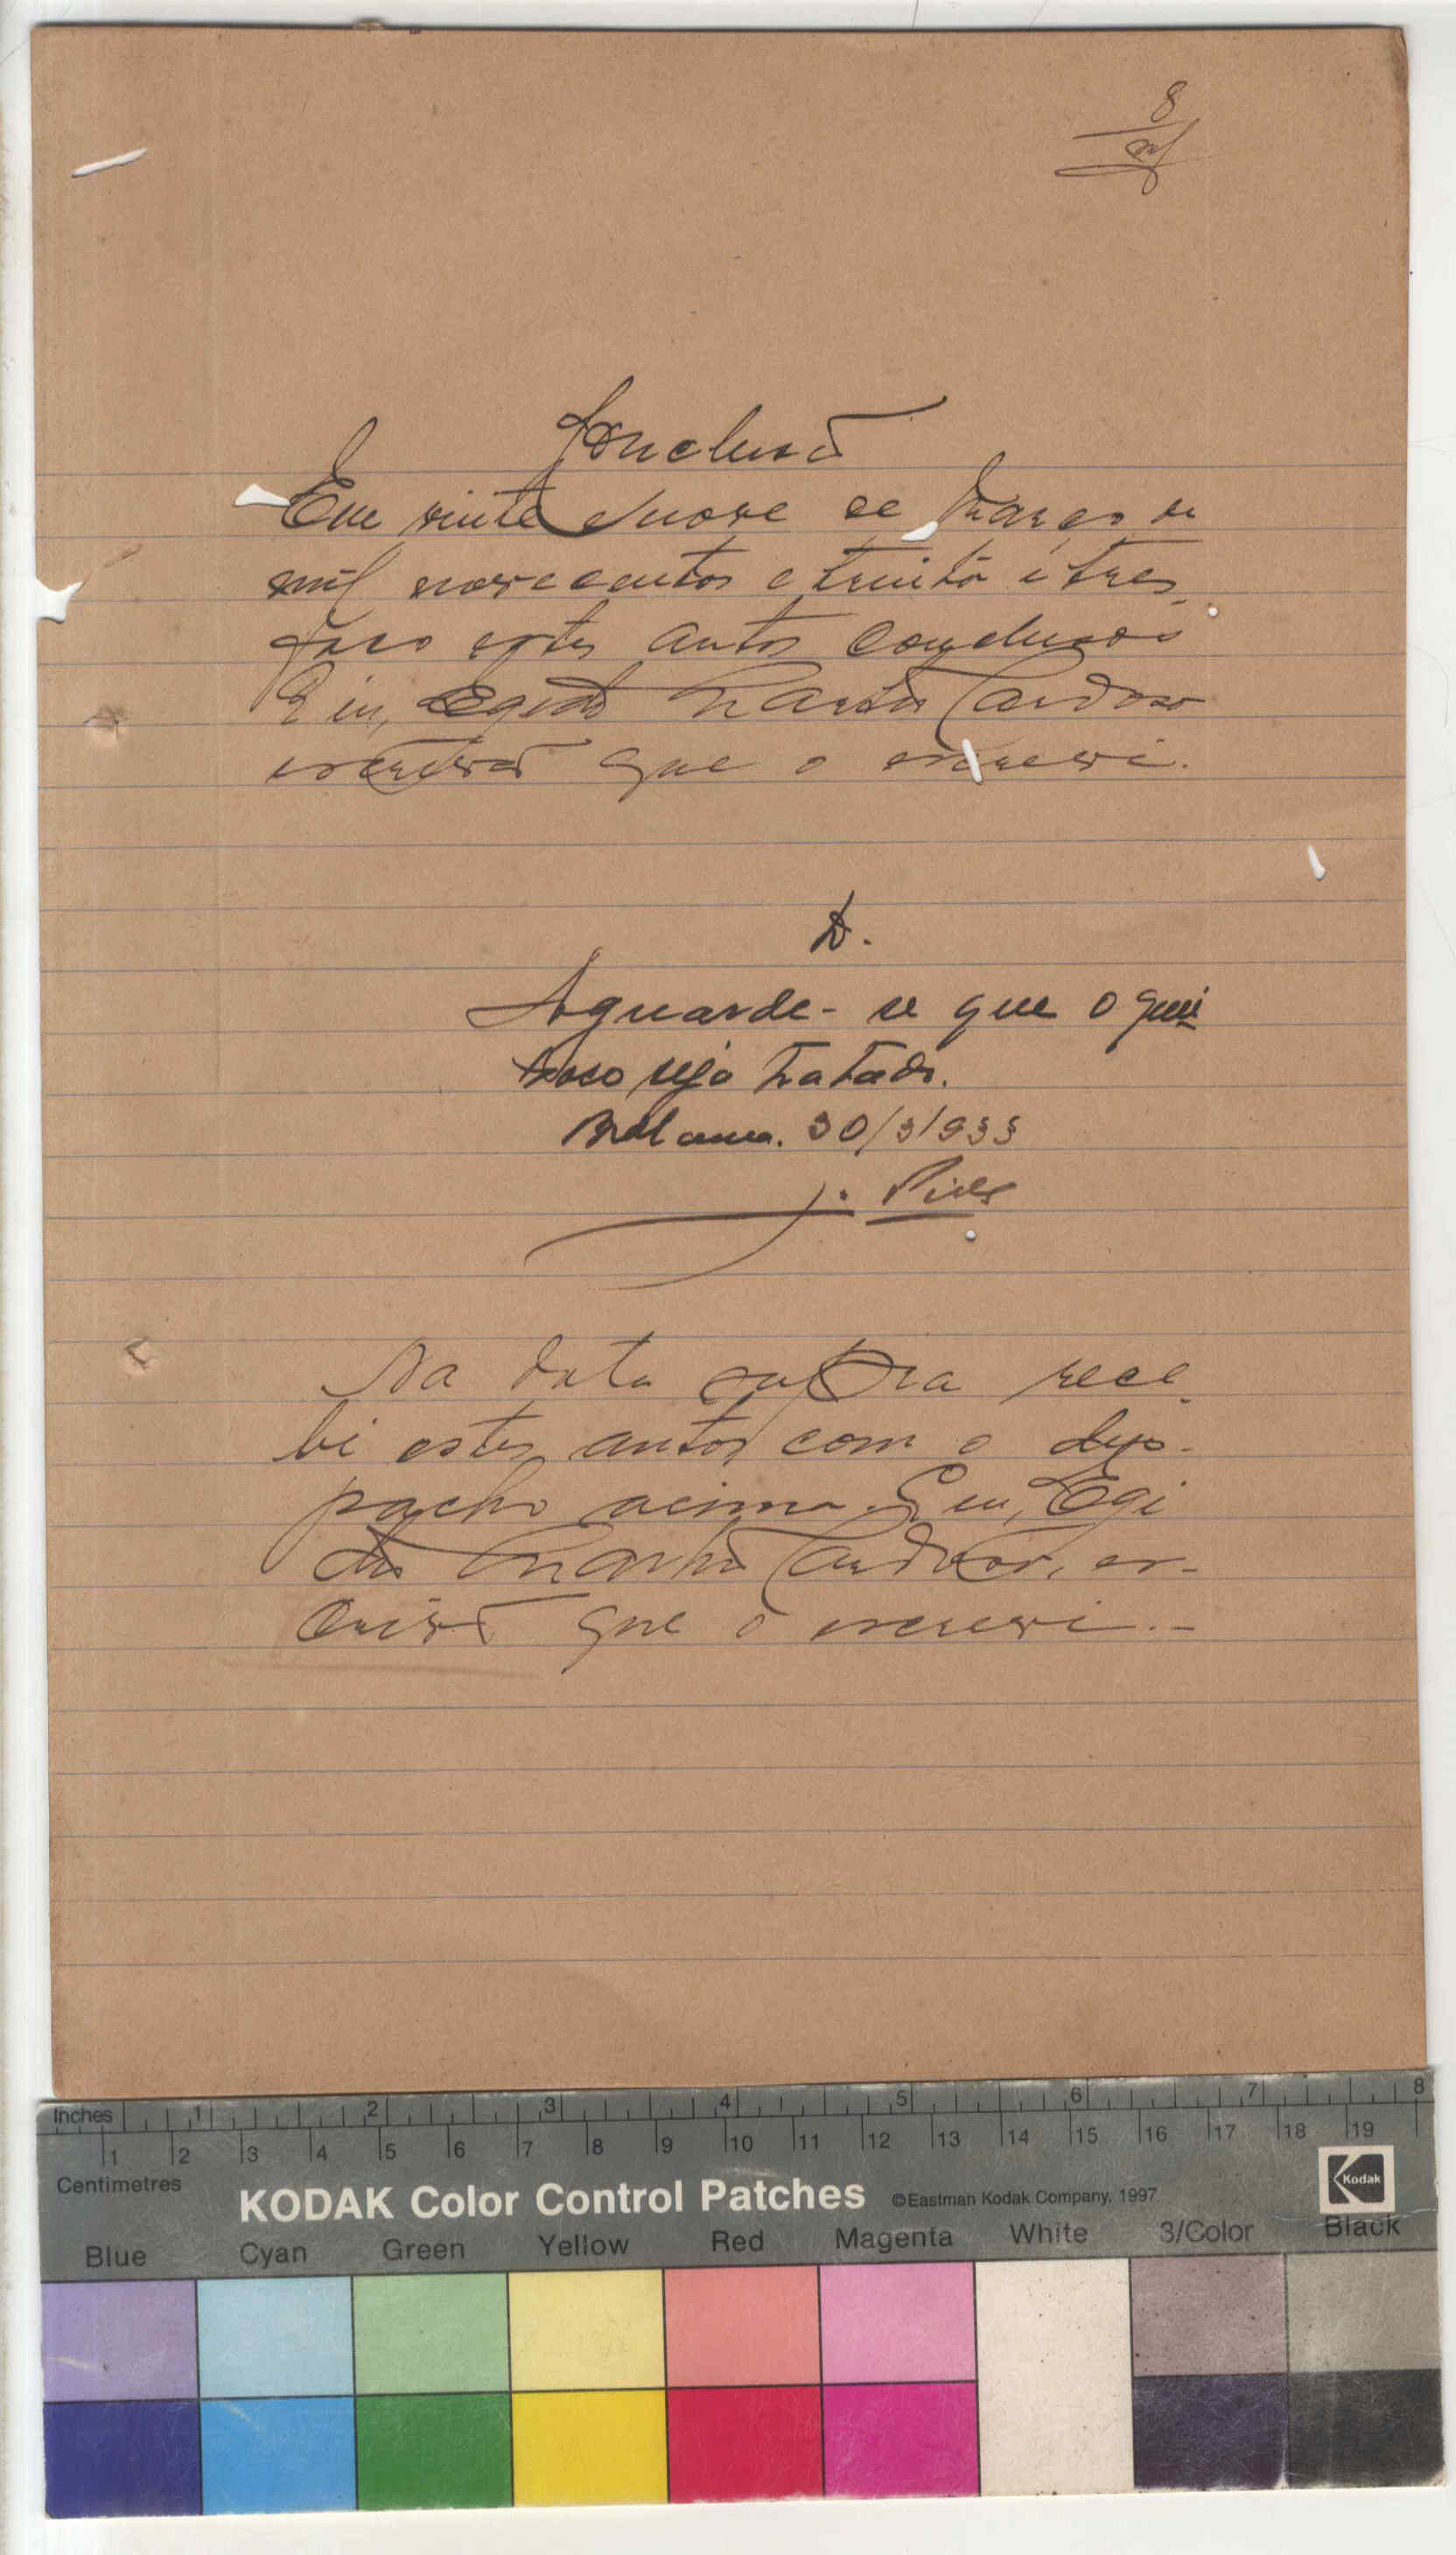 8
Conclusão
Em vinte e nove de Março de
mil novecentos e trinta e tres
faço estes autos conclusos
Eu, Egidio Cardoso
escrivão que o escrevi.
D.
Aguarde-se que o
seja tratado.
30/3/933
J. Pires
Na data supra rece
bi estes autos com o des-
pacho acima. Eu, Egi
dio Cardoso, es-
crivão que o escrevi.-
Inches 1 2 3 4 5 6 7 8
1 2 3 4 5 6 7 8 9 10 11 12 13 14 15 16 17 18 19
Centimetres
KODAK Color Control Patches ©Eastman Kodak Company, 1997 Kodak
Blue Cyan Green Yellow Red Magenta White 3/Color Black